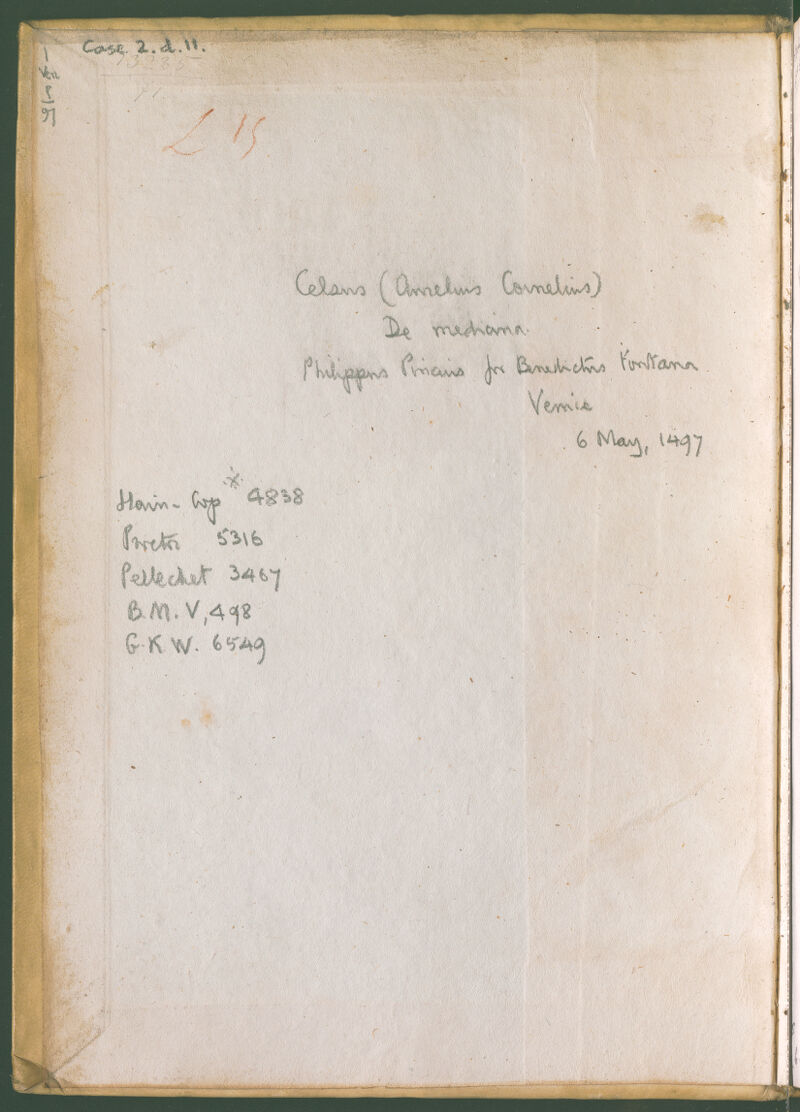 Case. 2. d. 11.
I
Ven
97
£ 15
Celsus (Aurelius Cornelius)
De medicina.
Philippus Pincius for Benedictus Fontana
Venice
6 May, 1497
Hain-Cop * 4838
Proctor 5316
Pellechet 3467
B.M. V, 498
G.K.W. 6549